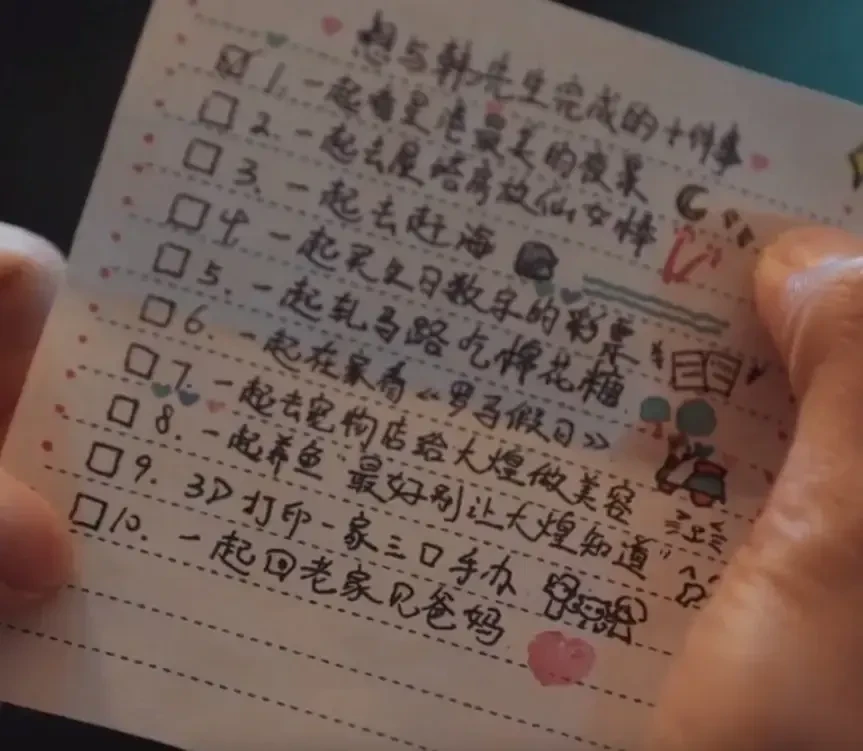 想与韩先生完成的十件事
☑ 1. 一起看星港最美的夜景
□ 2. 一起去屋塔房放仙女棒
□ 3. 一起去赶海
□ 4. 一起买生日数字的彩票
□ 5. 一起轧马路吃棉花糖
□ 6. 一起在家看《罗马假日》
□ 7. 一起去宠物店给大煌做美容
□ 8. 一起养鱼 "最好别让大煌知道"
□ 9. 3D打印一家三口手办
□ 10. 一起回老家见爸妈